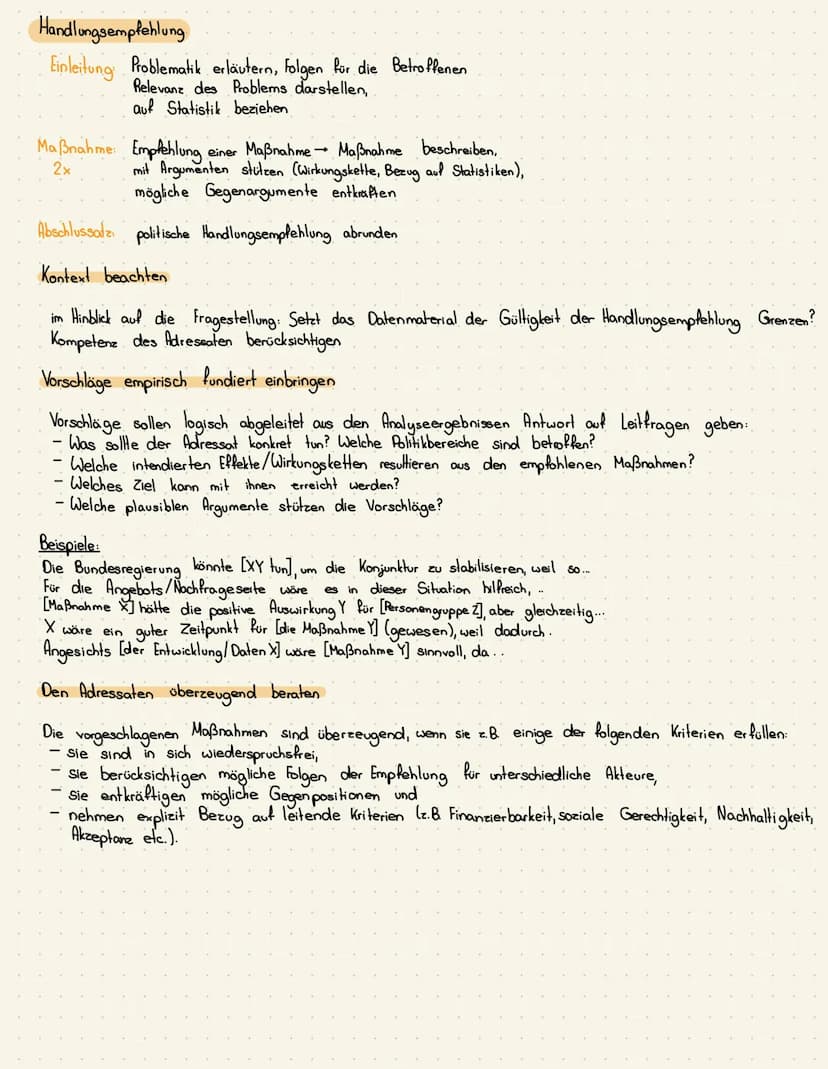 Handlungsempfehlung
Einleitung: Problematik erläutern, Folgen für die Betroffenen
Relevanz des Problems darstellen,
auf Statistik beziehen
Maßnahme: Empfehlung einer Maßnahme → Maßnahme beschreiben,
2x mit Argumenten stützen (Wirkungskette, Bezug auf Statistiken),
mögliche Gegenargumente entkräften
Abschlussatz: politische Handlungsempfehlung abrunden
Kontext beachten
im Hinblick auf die Fragestellung: Setzt das Datenmaterial der Gültigkeit der Handlungsempfehlung Grenzen?
Kompetenz des Adressaten berücksichtigen
Vorschläge empirisch fundiert einbringen
Vorschläge sollen logisch abgeleitet aus den Analyseergebnissen Antwort auf Leitfragen geben:
- Was sollte der Adressat konkret tun? Welche Politikbereiche sind betroffen?
- Welche intendierten Effekte/Wirkungsketten resultieren aus den empfohlenen Maßnahmen?
- Welches Ziel kann mit ihnen erreicht werden?
- Welche plausiblen Argumente stützen die Vorschläge?
Beispiele:
Die Bundesregierung könnte [XY tun], um die Konjunktur zu stabilisieren, weil so...
Für die Angebots/Nachfrageseite wäre es in dieser Situation hilfreich, ..
[Maßnahme X] hätte die positive Auswirkung Y für [Personengruppe Z], aber gleichzeitig...
X wäre ein guter Zeitpunkt für [die Maßnahme Y] (gewesen), weil dadurch .
Angesichts [der Entwicklung/Daten X] wäre [Maßnahme Y] sinnvoll, da ..
Den Adressaten überzeugend beraten
Die vorgeschlagenen Maßnahmen sind überzeugend, wenn sie z.B. einige der folgenden Kriterien erfüllen:
- sie sind in sich wiederspruchsfrei,
- sie berücksichtigen mögliche Folgen der Empfehlung für unterschiedliche Akteure,
- sie entkräftigen mögliche Gegenpositionen und
- nehmen explizit Bezug auf leitende Kriterien (z.B. Finanzierbarkeit, soziale Gerechtigkeit, Nachhaltigkeit,
Akzeptanz etc.).